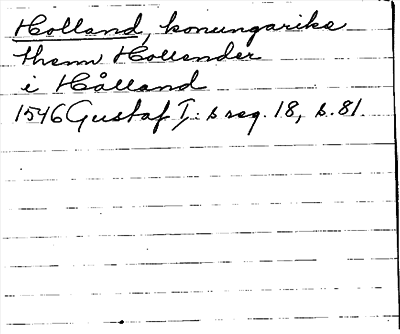 Holland, konungarike
them Hollender
i Hålland
1546 Gustaf I:s reg. 18, s. 81.